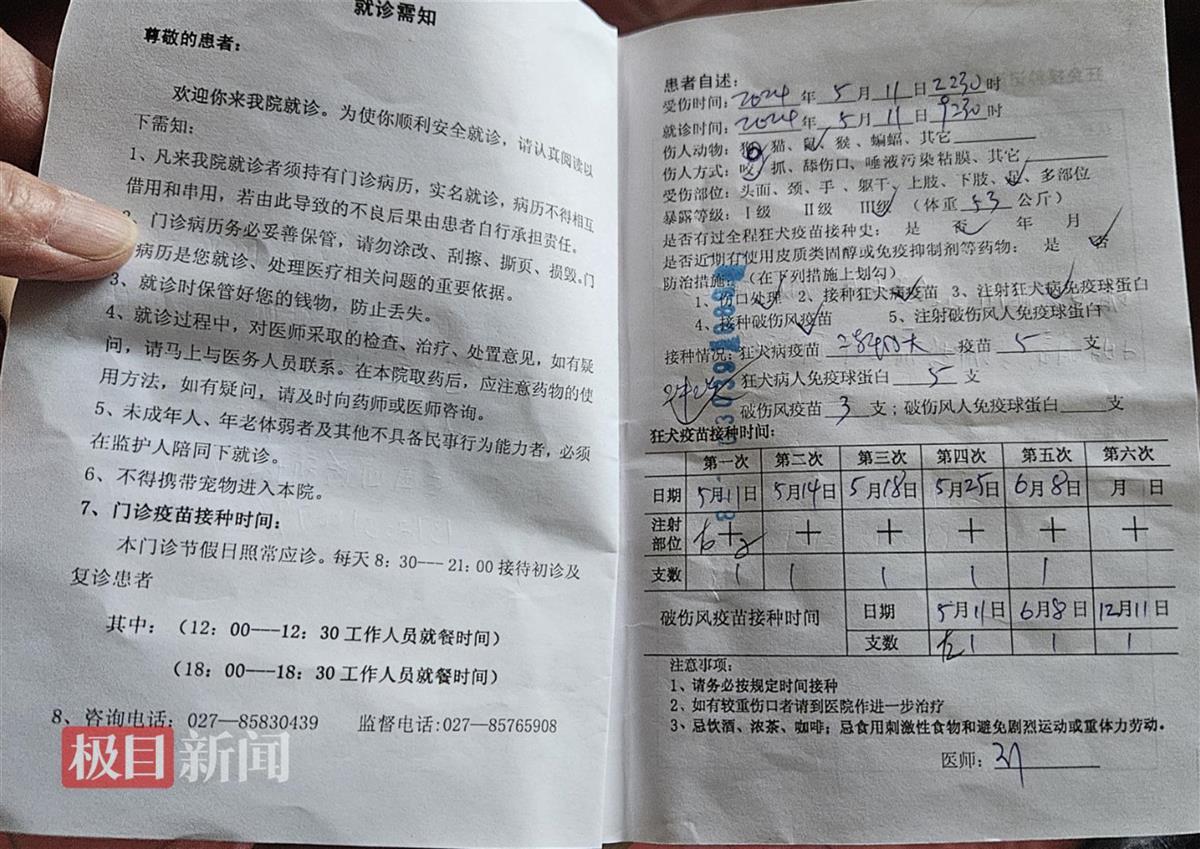 就诊需知
尊敬的患者：
欢迎你来我院就诊。为使你顺利安全就诊，请认真阅读以
下需知：
1、凡来我院就诊者须持有门诊病历，实名就诊，病历不得相互
借用和串用，若由此导致的不良后果由患者自行承担责任。
2、门诊病历务必妥善保管，请勿涂改、刮擦、撕页、损毁。门
病历是您就诊、处理医疗相关问题的重要依据。
3、就诊时保管好您的钱物，防止丢失。
4、就诊过程中，对医师采取的检查、治疗、处置意见，如有疑
问，请马上与医务人员联系。在本院取药后，应注意药物的使
用方法，如有疑问，请及时向药师或医师咨询。
5、未成年人、年老体弱者及其他不具备民事行为能力者，必须
在监护人陪同下就诊。
6、不得携带宠物进入本院。
7、门诊疫苗接种时间：
本门诊节假日照常应诊。每天8：30---21：00接待初诊及
复诊患者
其中：（12：00---12：30工作人员就餐时间）
（18：00---18：30工作人员就餐时间）
8、咨询电话：027—85830439 监督电话:027—85765908
极目新闻
患者自述：
受伤时间：2024年5月11日2230时
就诊时间：2024年5月11日9230时
伤人动物：狗、猫、鼠、猴、蝙蝠、其它
伤人方式：咬、抓、舔伤口、唾液污染粘膜、其它
受伤部位：头面、颈、手、躯干、上肢、下肢、足、多部位
暴露等级：Ⅰ级 Ⅱ级 Ⅲ级 （体重53公斤）
是否有过全程狂犬疫苗接种史： 是 否 年 月
是否近期有使用皮质类固醇或免疫抑制剂等药物： 是 否
防治措施：（在下列措施上划勾）
1、伤口处理 2、接种狂犬病疫苗 3、注射狂犬病免疫球蛋白
4、接种破伤风疫苗 5、注射破伤风人免疫球蛋白
接种情况：狂犬病疫苗 疫苗5支
狂犬病人免疫球蛋白5支
破伤风疫苗3支；破伤风人免疫球蛋白 支
狂犬疫苗接种时间：
第一次 第二次 第三次 第四次 第五次 第六次
日期 5月11日 5月14日 5月18日 5月25日 6月8日 月 日
注射
部位 + + + + + +
支数 1 1 1 1 1
破伤风疫苗接种时间 日期 5月11日 6月8日 12月11日
支数 左1 1 1
注意事项：
1、请务必按规定时间接种
2、如有较重伤口者请到医院作进一步治疗
3、忌饮酒、浓茶、咖啡；忌食用刺激性食物和避免剧烈运动或重体力劳动。
医师：